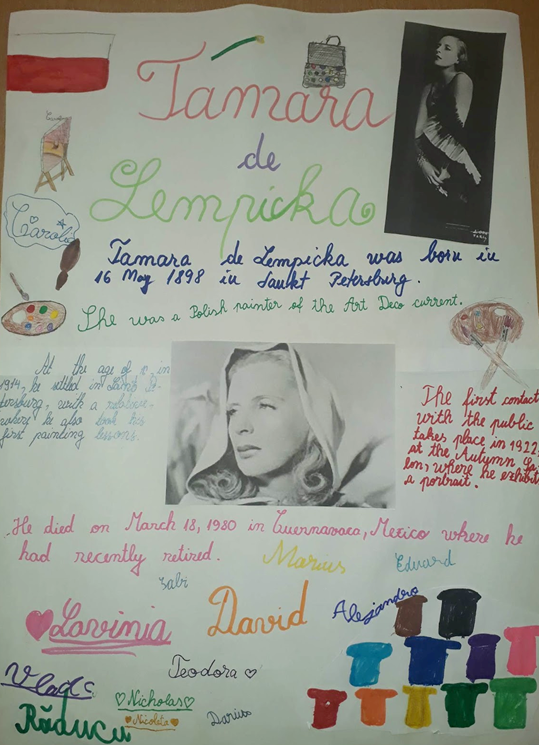 Tamara
de
Lempicka
Carol
Tamara de Lempicka was born in
16 May 1898 in Sankt Petersburg.
She was a Polish painter of the Art Deco current.
At the age of in
1914, he settled in Sankt Pe-
tersburg, with a relative
where he also took his
first painting lessons.
The first contact
with the public
takes place in 1922,
at the Autumn
lon, where he exhibits
a portrait.
He died on March 18, 1980 in Cuernavaca, Mexico where he
had recently retired.
Marius
Eduard
Gabi
Lavinia
David
Alejandro
Vlad
Teodora
Răducu
Nicholas
Nicoleta
Darius